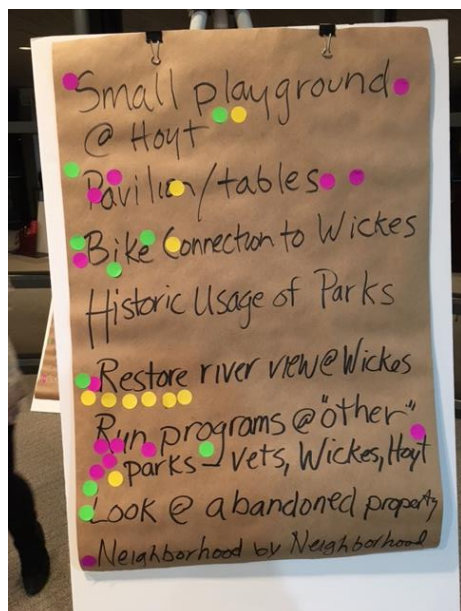 Small playground
@ Hoyt
Pavilion/tables
Bike Connection to Wickes
Historic Usage of Parks
Restore river view @ Wickes
Run programs @ "other"
parks - vets, Wickes, Hoyt
Look @ abandoned property
Neighborhood by Neighborhood